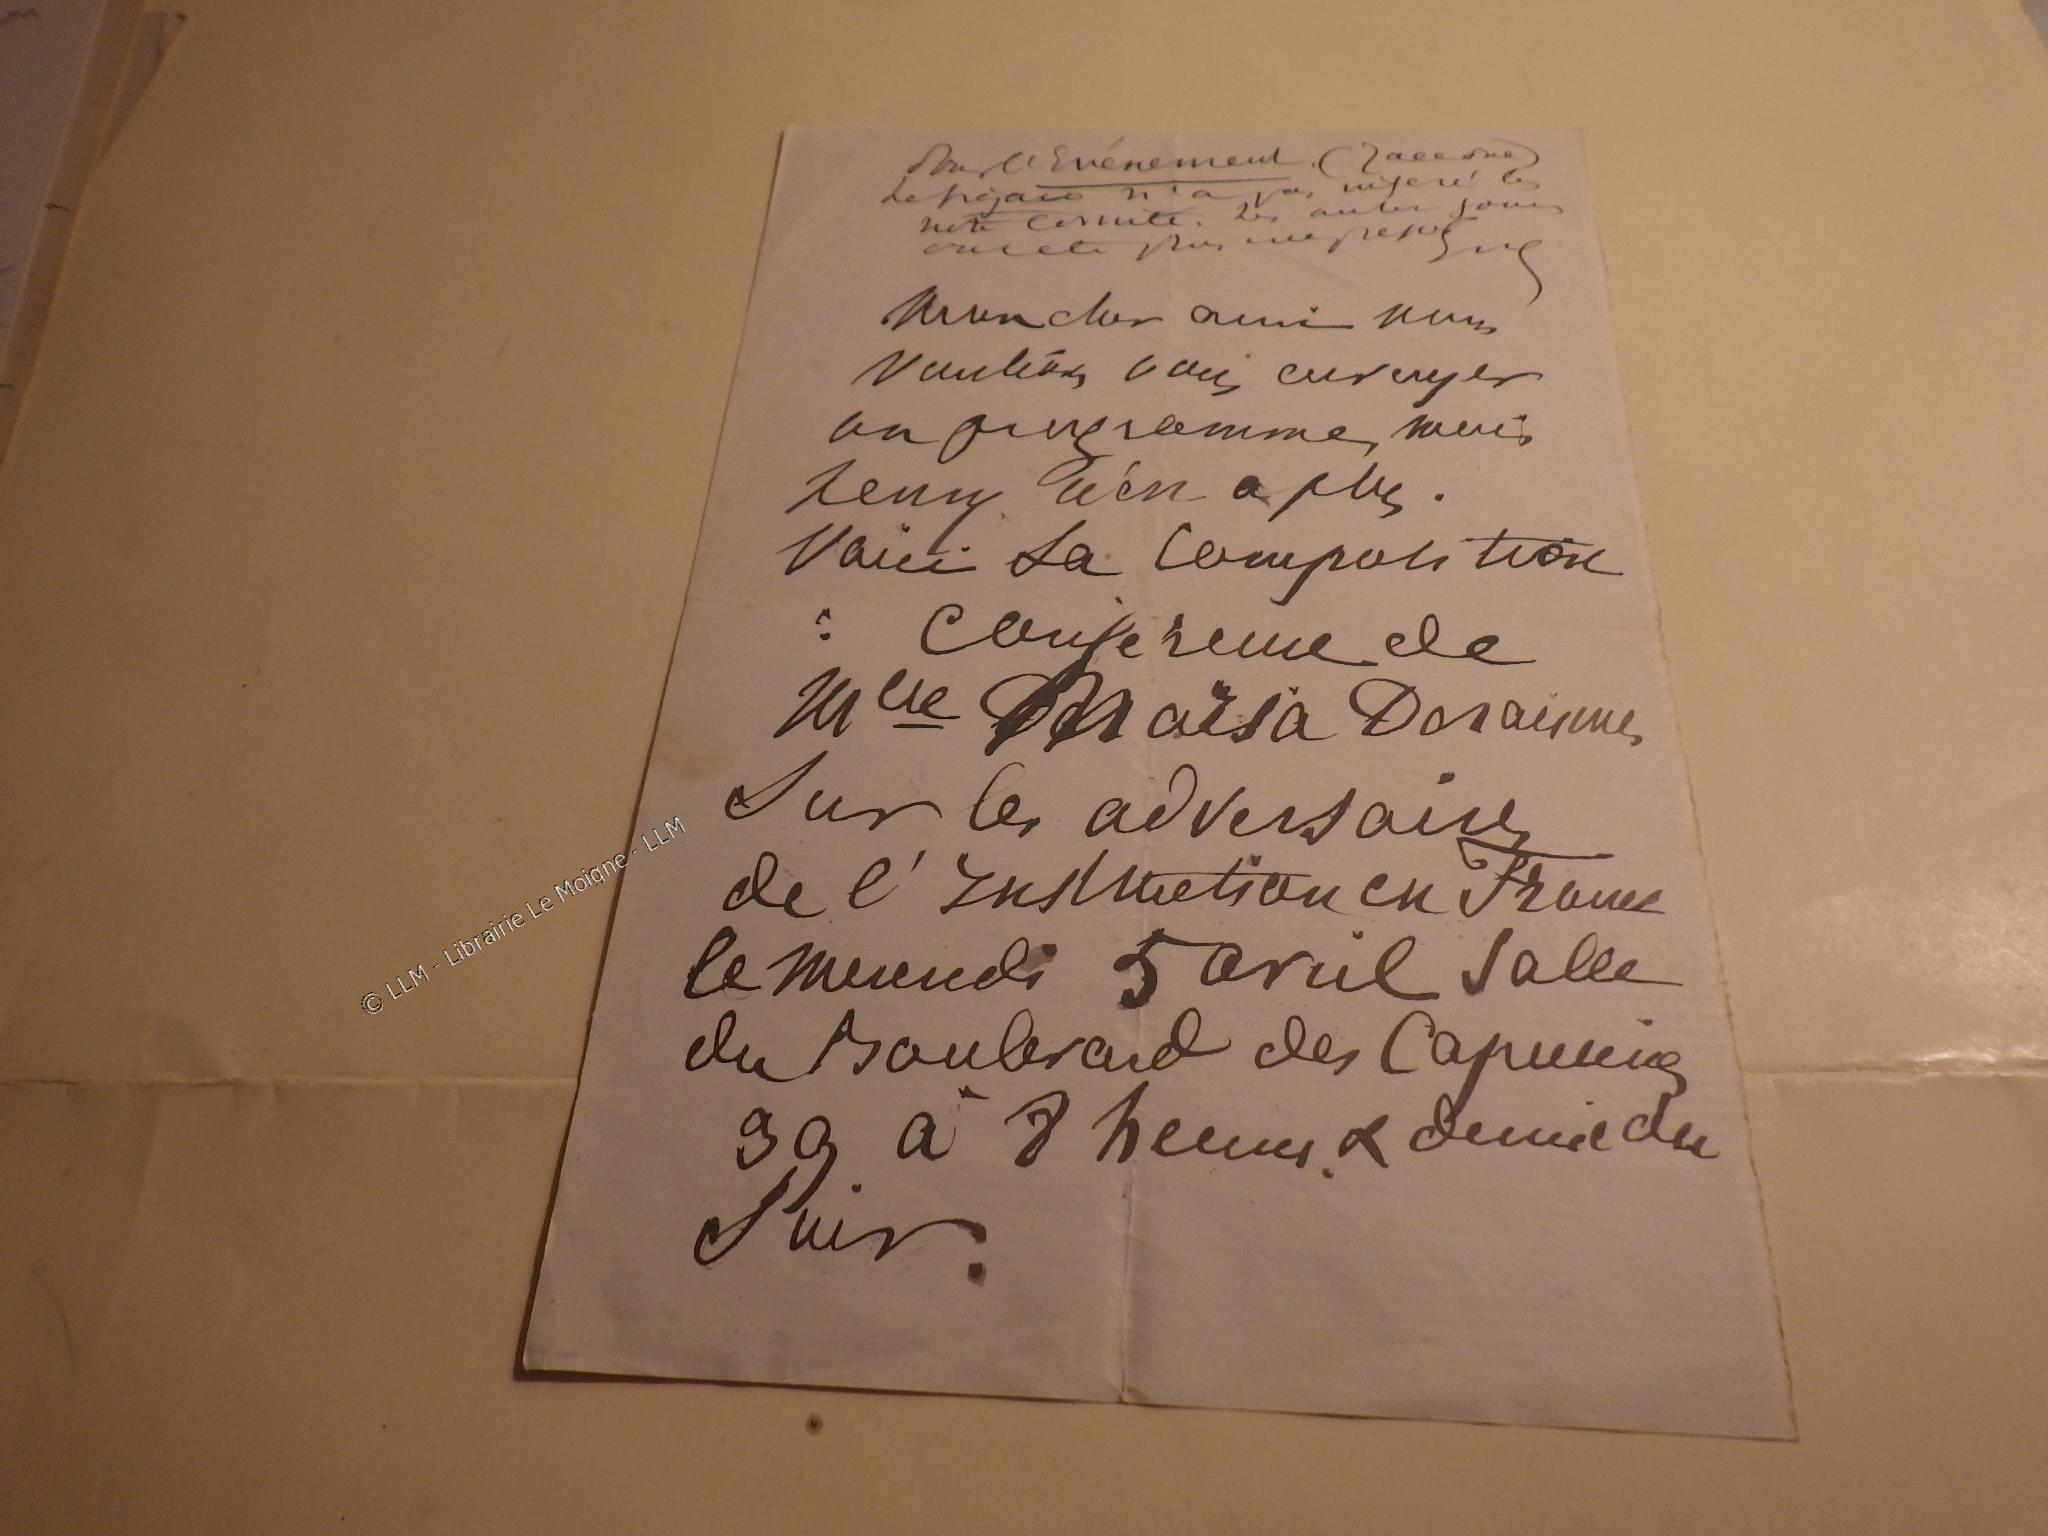 Pour l'Evénement. (
Le figaro n'a pas inseré les
note Comité. Les autres jours
plus
Mon cher ami nous
voulions vous envoyer
un programme, mais
n'en a plus.
Voici la Composition
: Conference de
Melle Maria Deraismes
Sur les adversaires
de l'Instruction en France
le mercredi 5 avril Salle
du Boulevard des Capucines
39 à 8 heures & demie du
Soir.
© LLM - Librairie Le Moigne - LLM